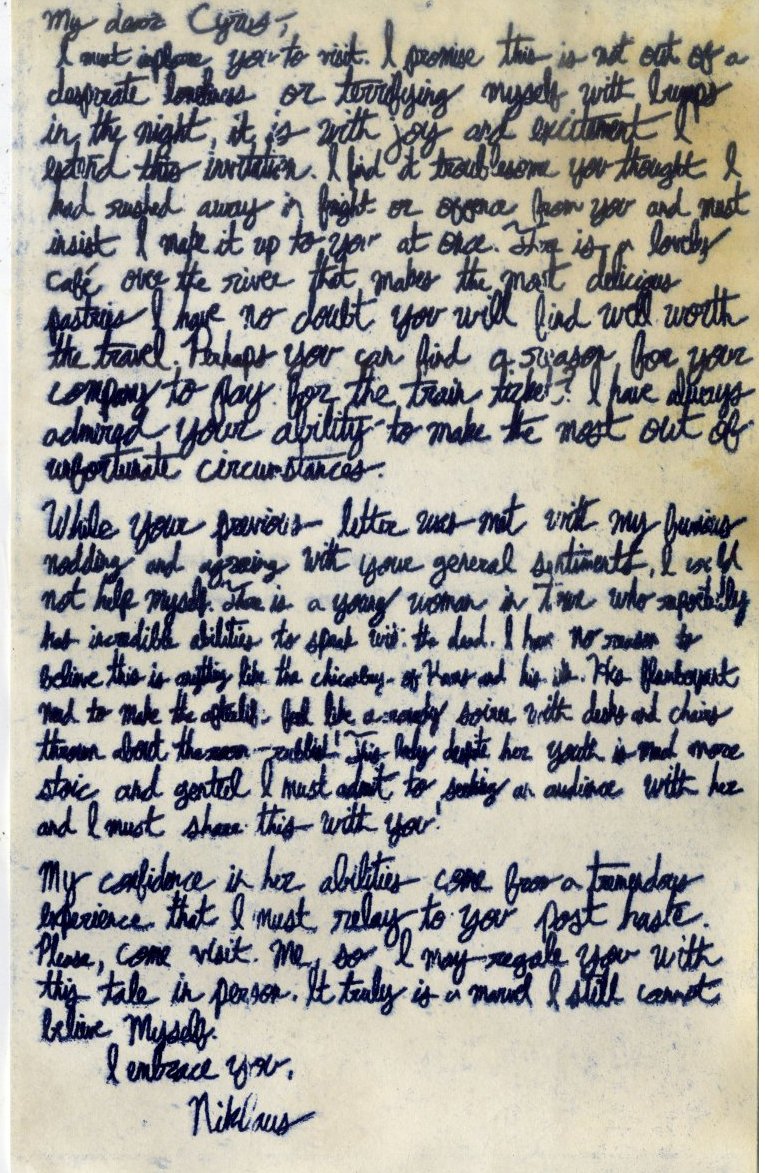 My dear Cyrus,
I must implore you to visit. I promise this is not out of a
desperate loneliness or terrifying myself with bumps
in the night, it is with joy and excitement I
extend this invitation. I find it troublesome you thought I
had rushed away in fright or offence from you and must
insist I make it up to you at once. There is a lovely
café over the river that makes the most delicious
pastries I have no doubt you will find well worth
the travel. Perhaps you can find a reason for your
company to pay for the train ticket? I have always
admired your ability to make the most out of
unfortunate circumstances.
While your previous letter was met with my furious
nodding and agreeing with your general sentiments, I could
not help myself. There is a young woman in who reportedly
has incredible abilities to speak with the dead. I have no reason to
believe this is anything like the of and his ilk. His flamboyant
need to make the afterlife feel like a rowdy soiree with desks and chairs
thrown about the room - rubbish! This lady despite her youth is much more
stoic and genteel I must admit to seeking an audience with her
and I must share this with you!
My confidence in her abilities come from a tremendous
experience that I must relay to you post haste.
Please, come visit me, so I may regale you with
this tale in person. It truly is a marvel I still cannot
believe myself.
I embrace you,
Niklaus